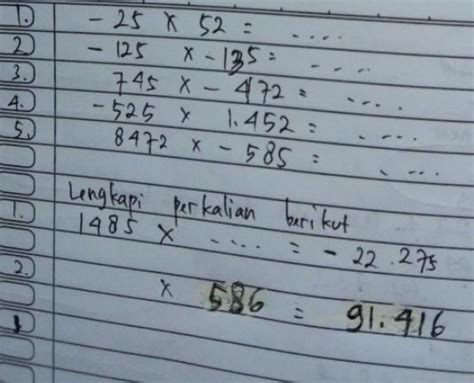 1. - 25 x 52 = ....
2. - 125 x - 135 = ...
3. 745 x - 472 = ...
4. - 525 x 1.452 = ....
5. 8472 x - 585 = ....
Lengkapi perkalian berikut
1. 1485 x .... = - 22.275
2. x 586 = 91.416